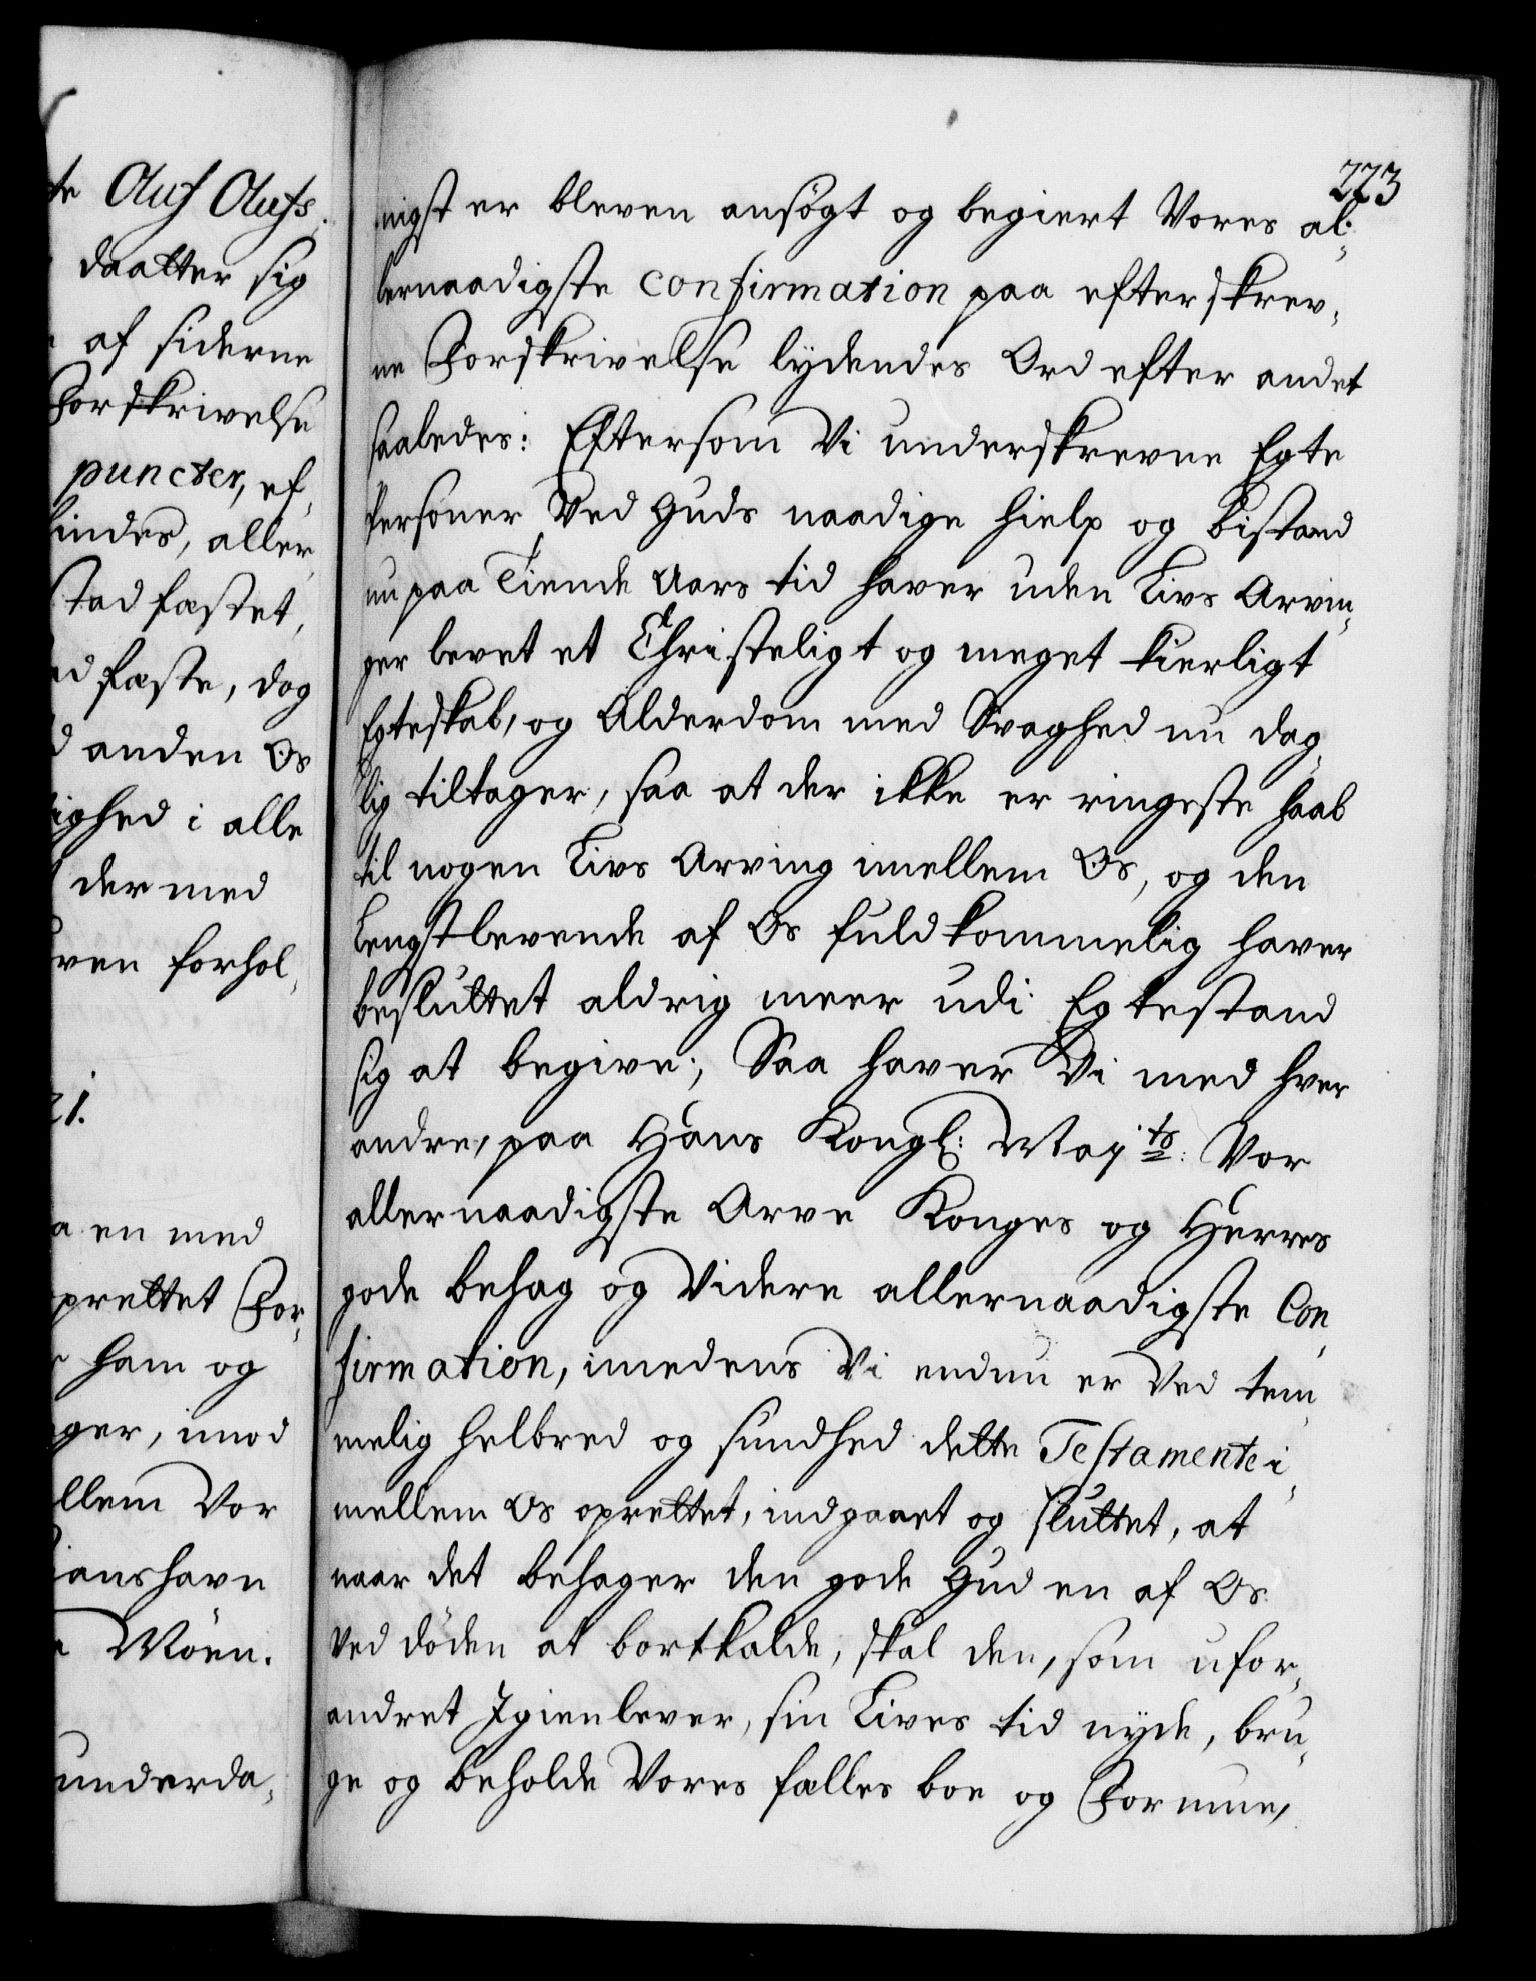 te Olufs Olufs.
daatter sig
af siderne
Forskrivelse
puncter, ef-
findes, aller
stadfæstet,
ad fæste, dog
d anden Os
ighed i alle
der med
ven forhol-
21.
a en med
prettet For-
ham og
ger, imod
llem Vor
ianshavn
Möen.
underda-
223
nigst er bleven ansøgt og begiert Vores al-
lernaadigste confirmation paa efterskrev-
ne Forskrivelse lydendes Ord efter andet
saaledes: Eftersom Vi underskrevne Egte
Personer Ved Guds naadige hielp og bistand
nu paa Tiende Aars tid haver uden Livs Arvin-
ger levet et Christeligt og meget kierligt
Egteskab, og Alderdom med Svaghed nu dag-
lig tiltager, saa at der ikke er ringeste haab
til nogen Livs Arving imellem Os, og den
Lengstlevende af Os fuldkommelig haver
besluttet aldrig meer udi Egtestand
sig at begive; Saa haver Vi med hver
andre, paa Hans Kongl: Mayts: Vor
allernaadigste Arve Konges og Herres
gode behag og Videre allernaadigste Con-
firmation, imedens Vi endnu er Ved tem-
melig helbred og sundhed dette Testamente i-
mellem Os oprettet, indgaaet og sluttet, at
naar det behager den gode Gud en af Os
Ved döden at bortkalde, skal den, som ufor-
andret Igienlever, sin Lives tid nyde, bru-
ge og beholde Vores fælles boe og Formue,